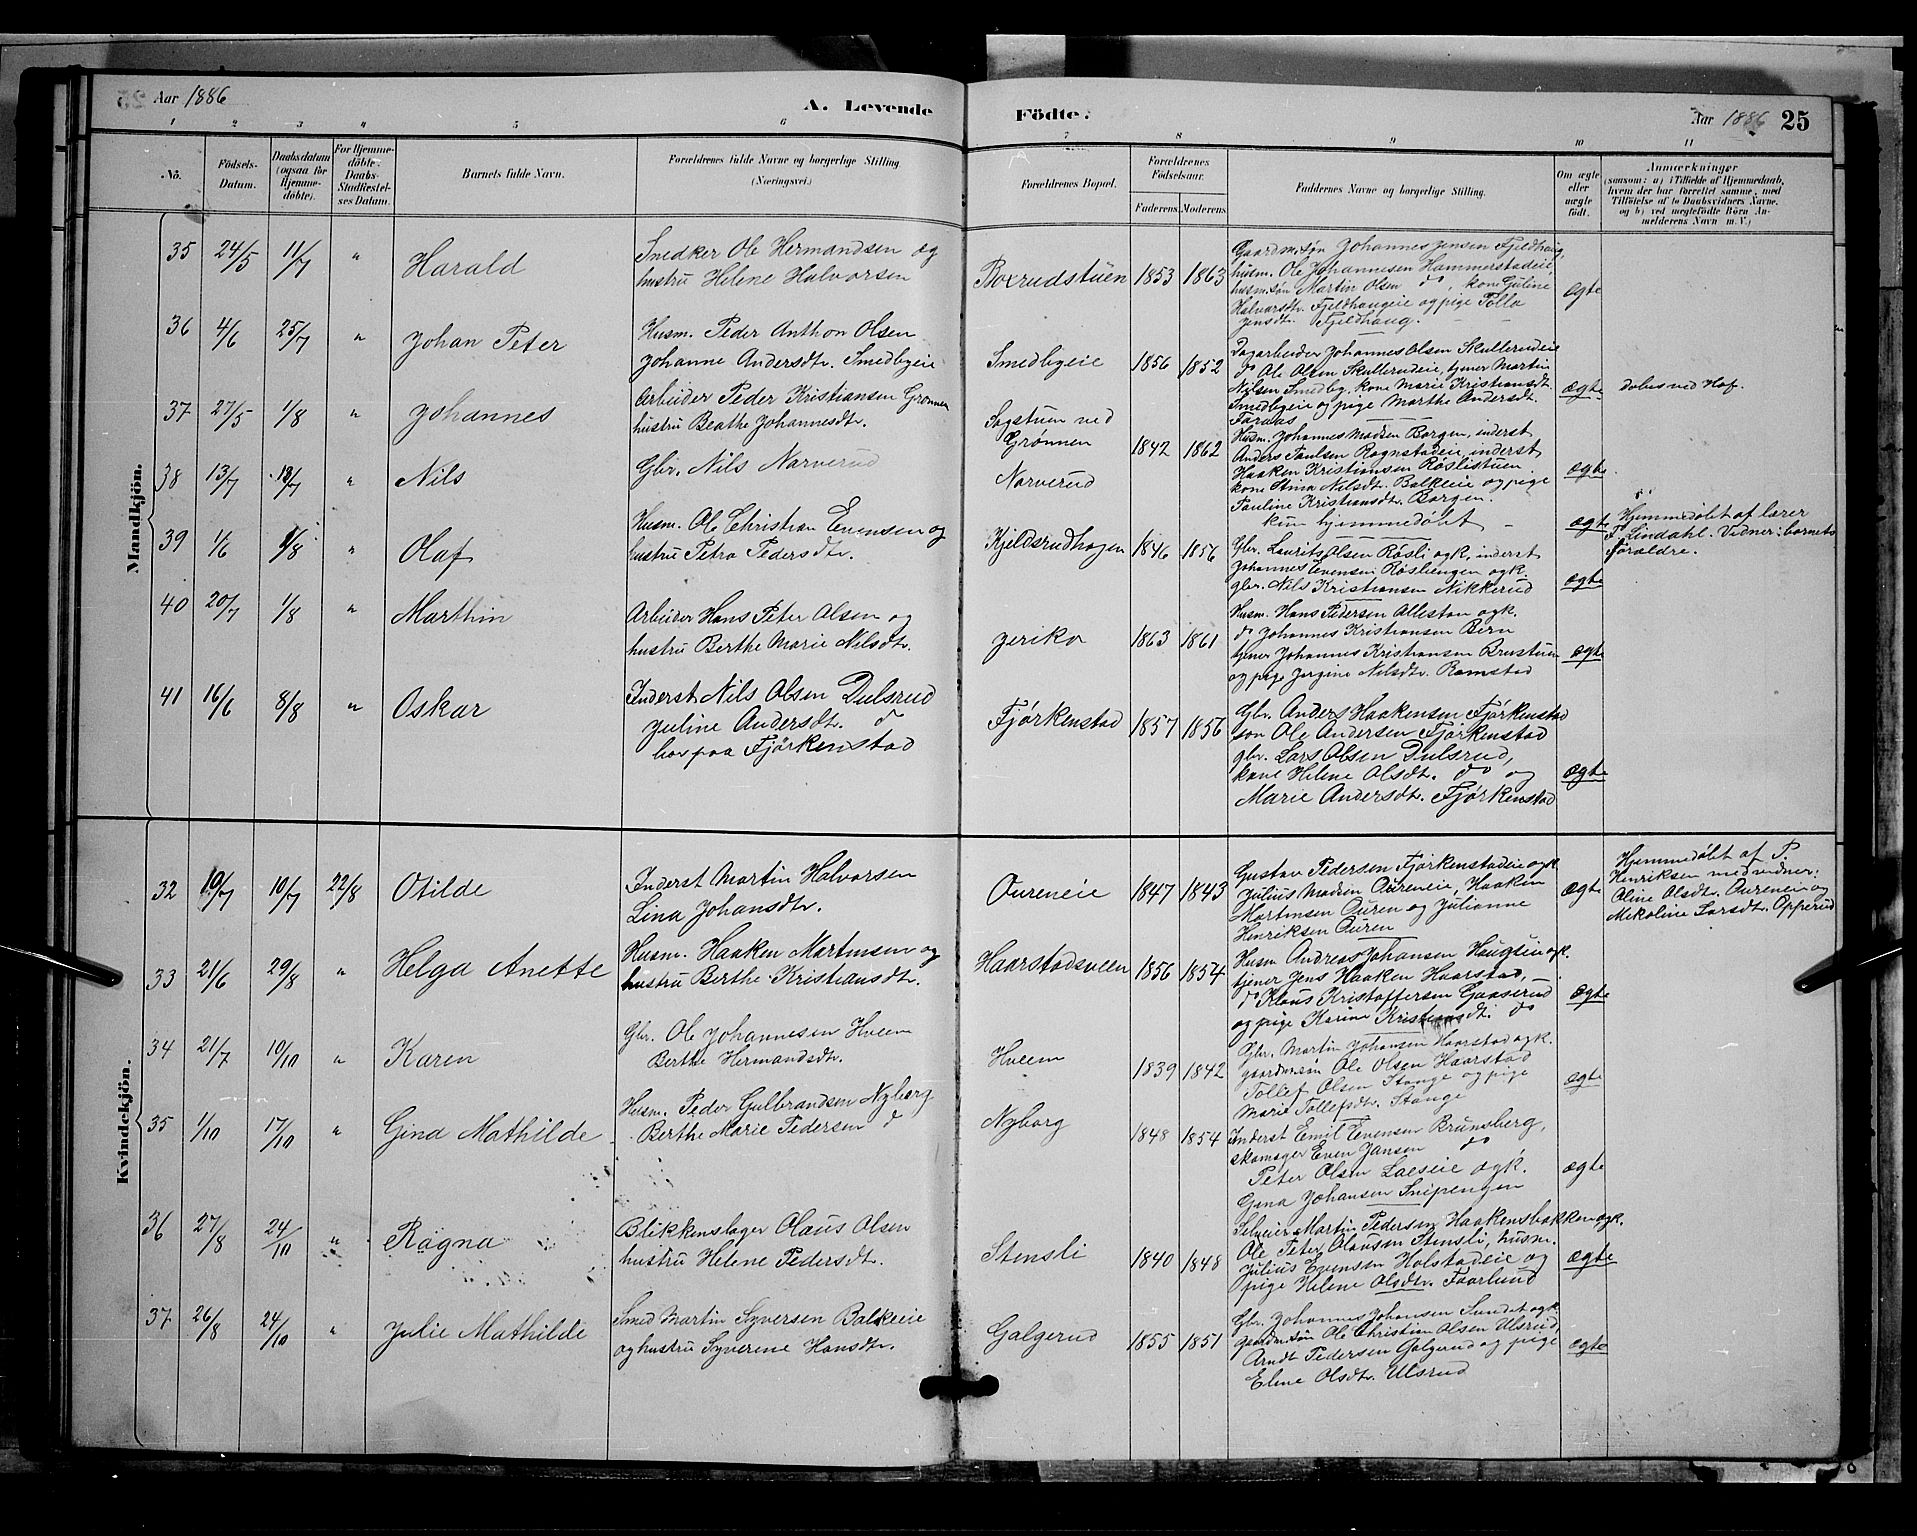 Aar 1886
A. Levende
Födte.
Aar 1886 25
1 2 3 4 5 6 7 8 9 10 11
No.
Födsels-Datum.
Daabsdatum (ogsaa for Hjemmedöbte).
For Hjemmedöbte: Daabs-Stadfestelses Datum.
Barnets fulde Navn.
Forældrenes fulde Navne og borgerlige Stilling
(Næringsvei.)
Forældrenes Bopæl.
Forældrenes Födselsaar.
Faderens. Moderens.
Faddernes Navne og borgerlige Stilling.
Om ægte eller uægte födt.
Anmærkninger
(saasom: a) i Tilfælde af Hjemmedaab,
hvem der har forrettet samme, med
Tilföielse af to Daabsvidners Navne.
og b) ved uegtefödte Börn An-
melderens Navn m. V.)
Mandkjön.
35 24/5 11/7 " Harald
Snedker Ole Hermandsen og
hustru Helene Halvorsen
Boxrudstuen 1853 1863
Gaardm.søn Johannes Jensen Fjeldhaug,
husm. Ole Johannesen Hammerstadeie
husm.søn Martin Olsen do, kone Guline
Halvorsdtr. Fjeldhaugeie og pige Tolla
Jensdtr. Fjeldhaug.
ægte
36 4/6 25/7 " Johan Peter
Husm. Peder Anthon Olsen
Johanne Andersdtr. Smedbyeie
Smedbyeie 1856 1852
Dagarbeider Johannes Olsen Skullerudeie
do Ole Olsen Skullerudeie, tjener Martin
Nilsen Smedby, kone Marie Kristiansdt.
Smedbyeie og pige Marthe Andersdt.
ægte
døbes ved Hof.
37 27/5 1/8 " Johannes
Arbeider Peder Kristiansen Grønnen
hustru Beathe Johannesdtr.
Sagstuen ved
Grønnen 1842 1862
Husm. Johannes Madsen Borgen, inderst
Anders Paulsen Rognstadeie, inderst
Haaken Kristiansen Røslistuen
kone Stina Nilsdt. Balkeie og pige
Pauline Kristiansdt. Borgen.
ægte
38 13/7 13/7 " Nils
Gbr. Nils Narverud
Narverud
kun hjemmedøbt –
ægte
Hjemmedøbt af lærer
F. Lindahl. Vidner: barnets
Forældre.
39 1/6 1/8 " Olaf
Husm. Ole Christian Evensen og
hustru Petra Pedersdtr.
Kjeldsrudhagen 1846 1856
Gbr. Laurits Olsen Røsli ogk, inderst
Johannes Evensen Røsliengen ogk
gbr. Nils Kristiansen Nikkerud
ægte
40 20/7 1/8 " Marthin
Arbeider Hans Peter Olsen og
hustru Berthe Marie Nilsdtr.
Jeriko 1863 1861
Husm. Hans Pedersen Allestan ogk.
do Johannes Kristiansen Bern
tjener Johannes Kristiansen Brustuen
og pige Jørgine Nilsdtr. Ramstad
ægte
41 16/6 8/8 " Oskar
Inderst Nils Olsen Dulsrud
Juline Andersdt. do
bor paa Fjørkenstad
Fjørkenstad 1857 1856
Gbr. Anders Haakensen Fjørkenstad
søn Ole Andersen Fjørkenstad
gbr. Lars Olsen Dulsrud,
kone Helene Olsdt. do og
Marie Andersdt. Fjørkenstad
ægte
Kvindekjön.
32 10/7 10/7 22/8 Otilde
Inderst Martin Halvorsen
Lina Johansdtr.
Oureneie 1847 1843
Gustav Pedersen Fjørkenstadeie ogk
Julius Madsen Oureneie, Haaken
Martinsen Ouren og Julianne
Henriksen Ouren
ægte
Hjemmedøbt af P.
Henriksen med vidner:
Oline Olsdt. Oureneie og
Mikoline Larsdt. Opperud
33 21/6 29/8 " Helga Anette
Husm. Haaken Martinsen og
hustru Berthe Kristiansdt.
Haarstadsveen 1856 1854
Husm Andreas Johansen Haugstein ogk.
tjener Jens Haaken Haarstad, –
do Klaus Kristoffersen Gaaserud
og pige Karine Kristiansdt. do
ægte
34 21/7 10/10 " Karen
Gbr. Ole Johannesen Hveem
Berthe Hermandsdtr.
Hveem 1839 1842
Gbr. Martin Johansen Haarstad ogk.
gaardm.søn Ole Olsen Haarstad
Tollef Olsen Stange og pige
Marie Tollefsdtr. Stange
ægte
35 1/10 17/10 " Gina Mathilde
Husm. Peder Gulbrandsen Nyborg
Berthe Marie Pedersen do
Nyborg 1848 1854
Inderst Emil Evensen Brunsberg,
skomager Even Jansen do
Peter Olsen Laeseie ogk.
Gina Johansen Snipengen
ægte
36 27/8 24/10 " Ragna
Blikkenslager Olaus Olsen
hustru Helene Pedersdtr.
Stensli 1840 1848
Selveier Martin Pedersen Haakensbakken ogk.
Ole Peter Olausen Stensli, husm.
Julius Evensen Holstadeie og
pige Helene Olsdtr. Faarlund
ægte
37 26/8 24/10 " Julie Mathilde
Smed Martin Syversen Balkeie
og hustru Syverene Hansdtr.
Galgerud 1855 1851
Gbr. Johannes Johansen Sundet ogk.
gaardm.søn Ole Christian Olsen Ulsrud,
Arndt Pedersen Galgerud og pige
Eline Olsdtr. Ulsrud
ægte